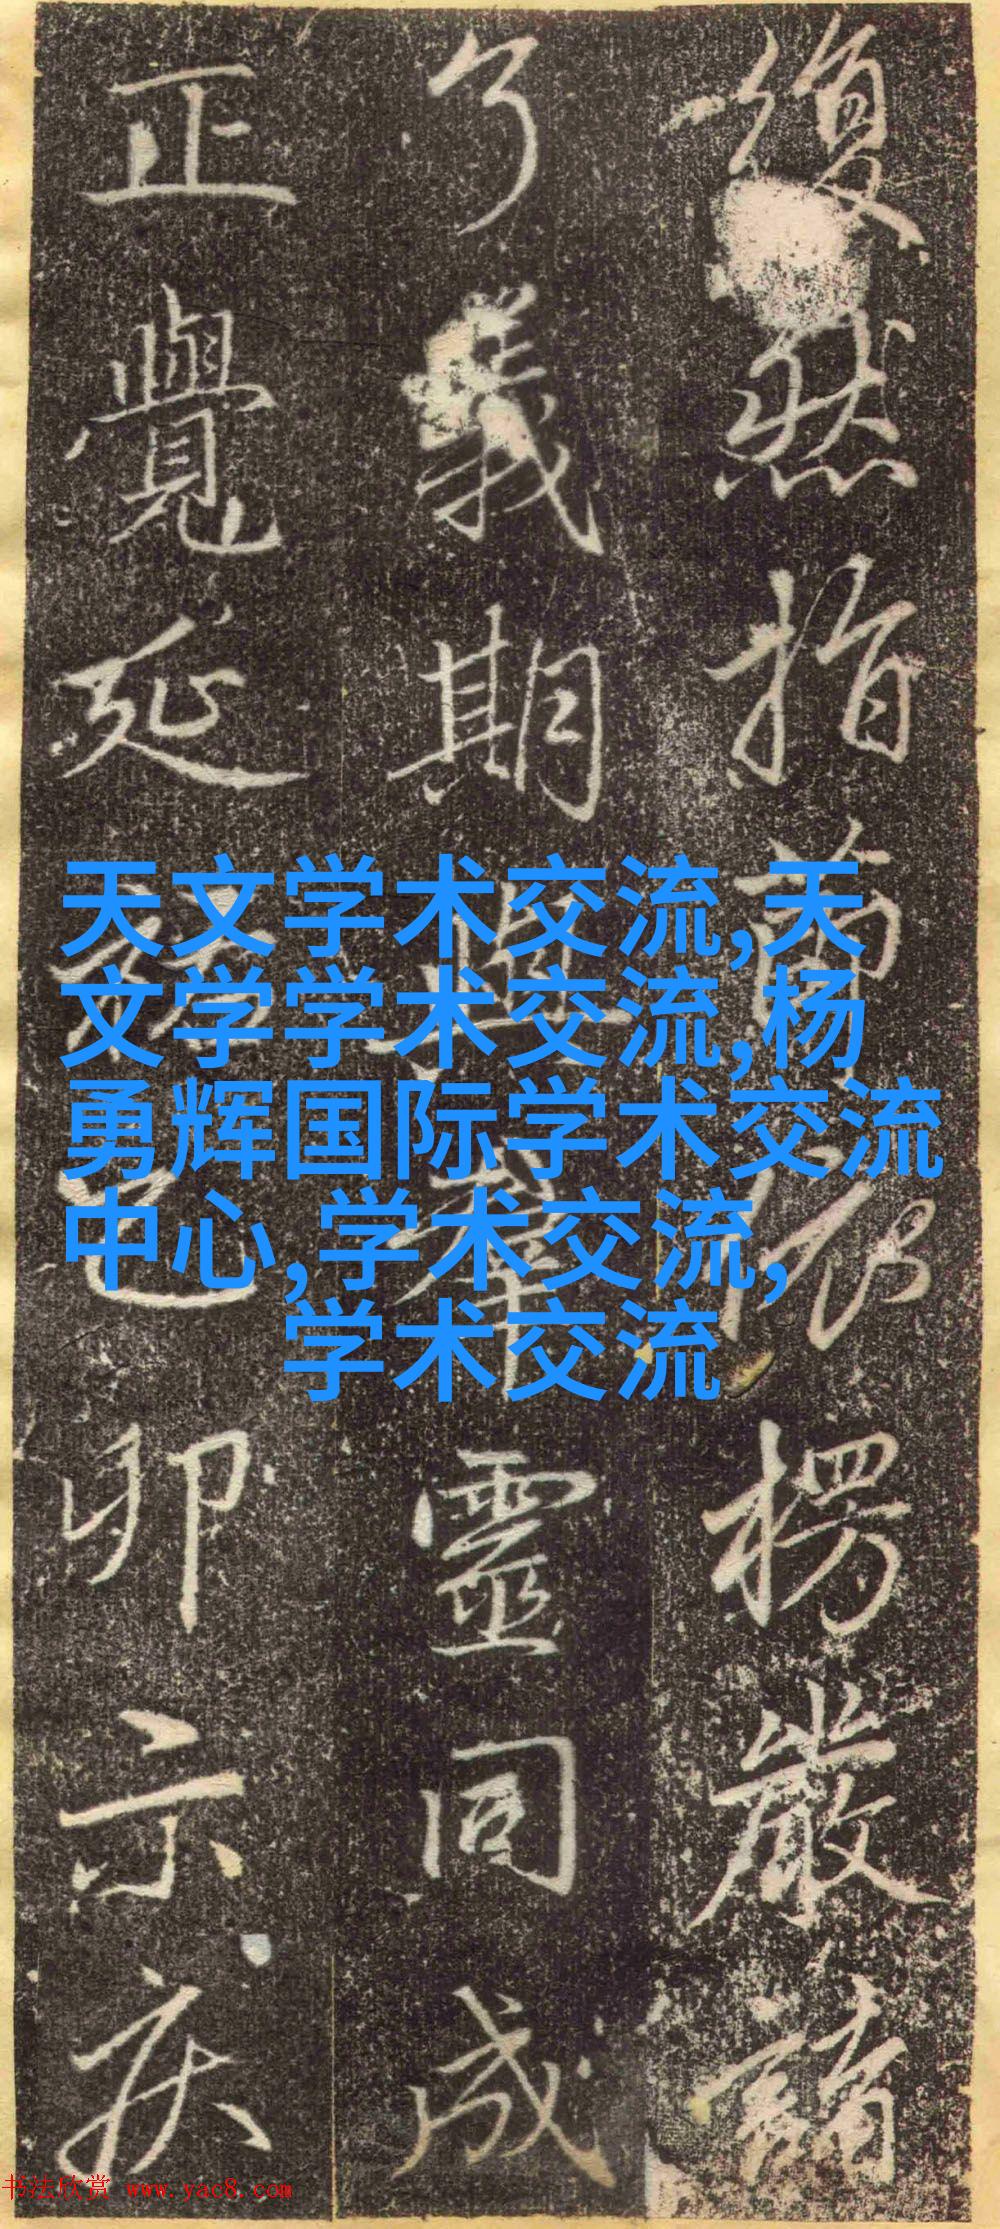 復然指
楞嚴
了義期
靈同成
正覺延
卯示疾
天文学术交流,天
文学学术交流,杨
勇辉国际学术交流
中心,学术交流,
学术交流
书法欣赏 www.yac8.com